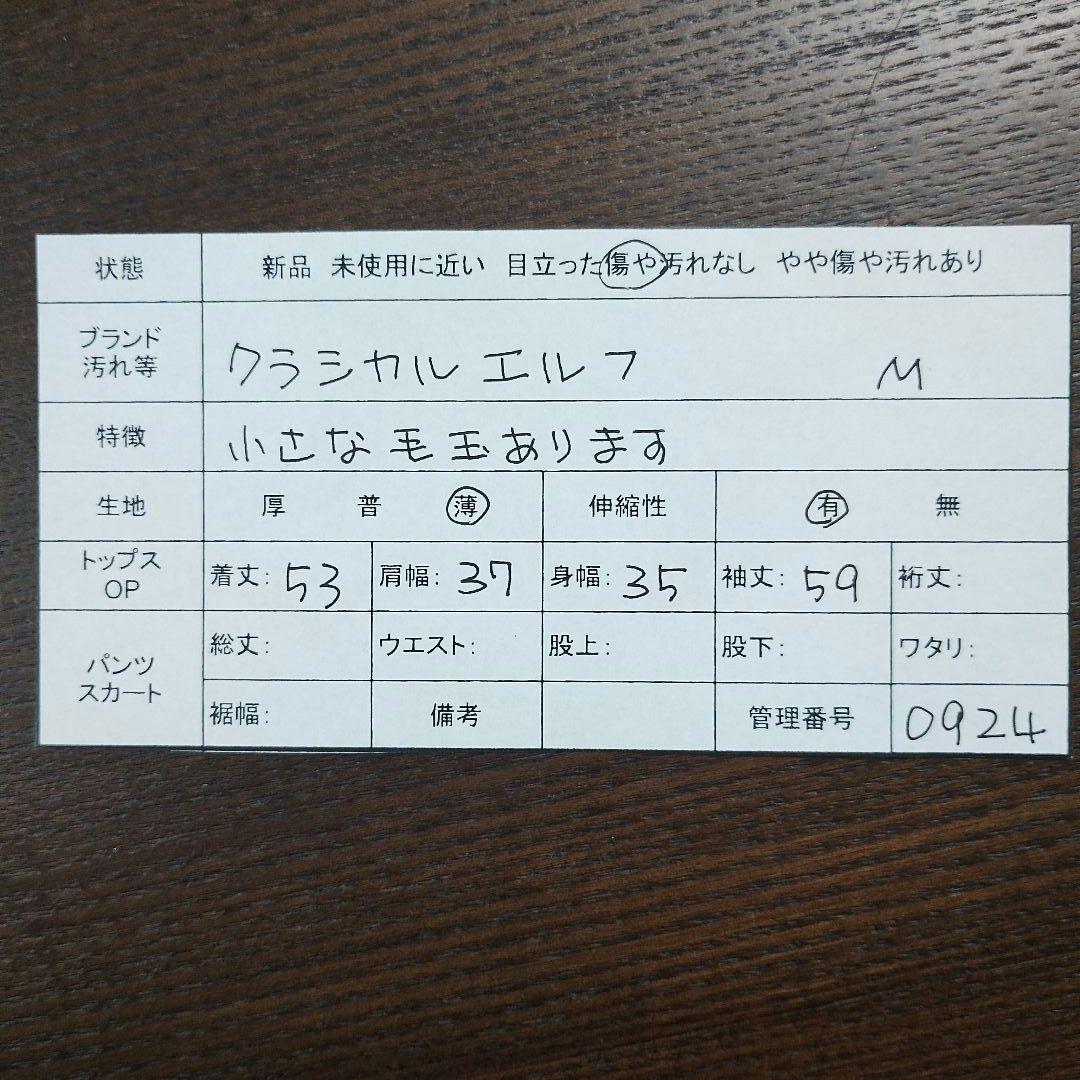 状態 新品 未使用に近い 目立った傷や汚れなし やや傷や汚れあり
ブランド
汚れ等 クラシカルエルフ M
特徴 小さな毛玉あります
生地 厚 普 薄 伸縮性 有 無
トップス
OP 着丈: 53 肩幅: 37 身幅: 35 袖丈: 59 裄丈:
パンツ
スカート 総丈: ウエスト: 股上: 股下: ワタリ:
裾幅: 備考 管理番号 0924